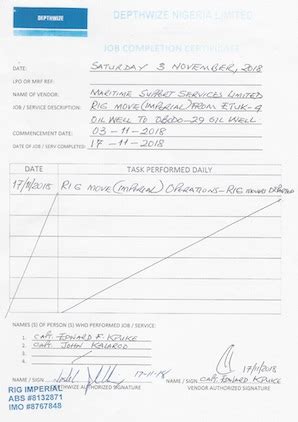 DEPTHWIZE
DEPTHWIZE NIGERIA LIMITED
JOB COMPLETION CERTIFICATE
DATE: SATURDAY 3 NOVEMBER, 2018
LPO OR MRF REF:
NAME OF VENDOR: MARITIME SUPPORT SERVICES LIMITED
JOB / SERVICE DESCRIPTION: RIG MOVE (IMPERIAL) FROM ETUK-4
OIL WELL TO OBODO-29 OIL WELL
COMMENCEMENT DATE: 03-11-2018
DATE OF JOB / SERV COMPLETED: 17-11-2018
DATE TASK PERFORMED DAILY
17/11/2018 RIG MOVE (IMPERIAL) OPERATIONS - RIG
NAMES(S) OF PERSON(S) WHO PERFORMED JOB / SERVICE:
1. CAPT. EDWARD F. KPUKE
2. CAPT. JOHN
3.
4.
17-11-18
17/11/2018
NAME / SIGN
NAME / SIGN CAPT. EDWARD KPUKE
DEPTHWIZE AUTHORIZED SIGNATURE
VENDOR AUTHORIZED SIGNATURE
RIG IMPERIAL
ABS #8132871
IMO #8767848